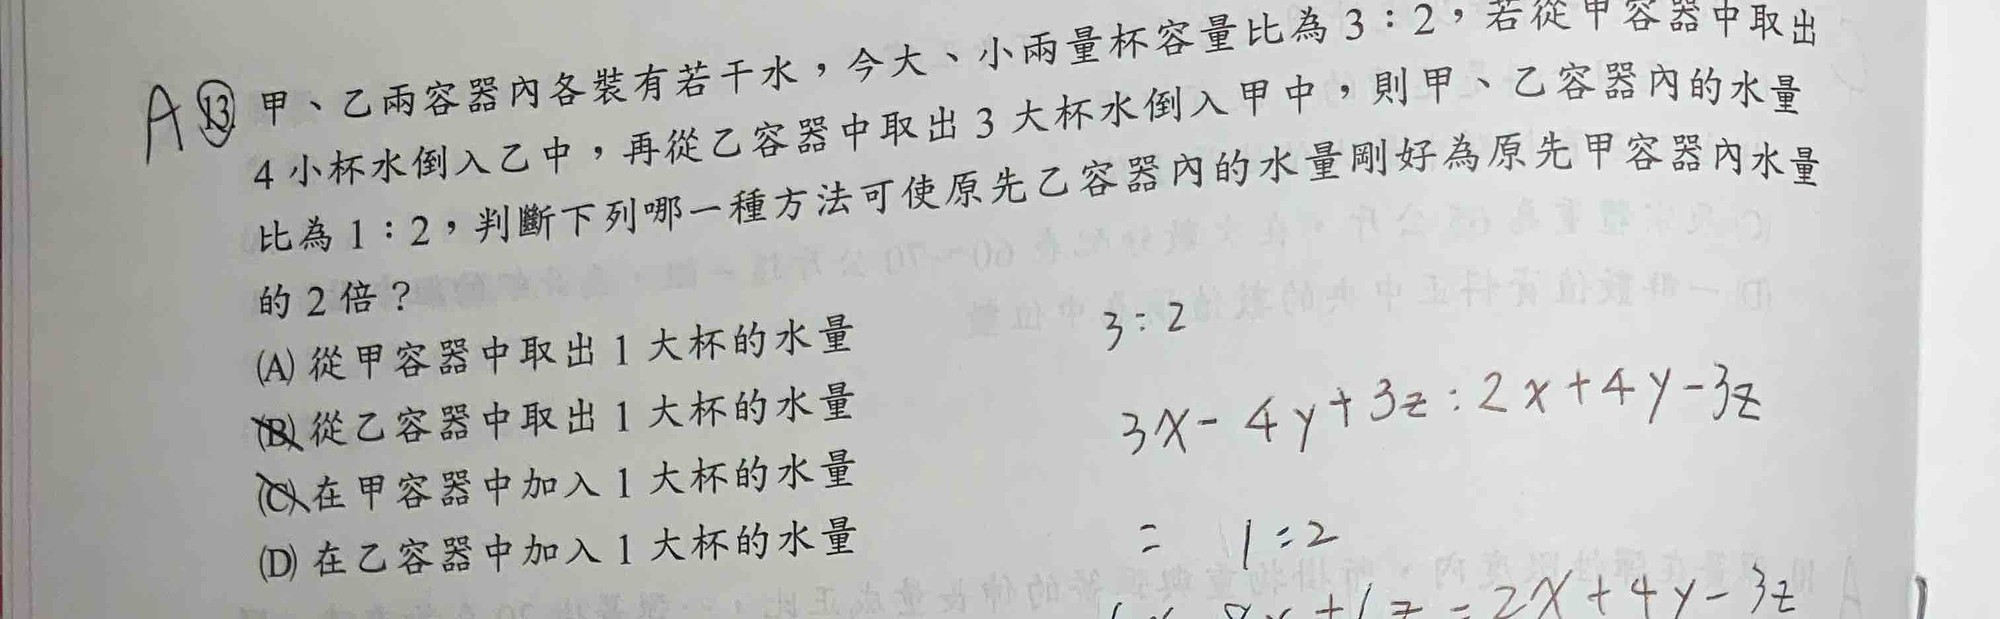 A ⑬ 甲、乙兩容器內各裝有若干水，今大、小兩量杯容量比為 3：2，若從甲容器中取出
4 小杯水倒入乙中，再從乙容器中取出 3 大杯水倒入甲中，則甲、乙容器內的水量
比為 1：2，判斷下列哪一種方法可使原先乙容器內的水量剛好為原先甲容器內水量
的 2 倍？
(A) 從甲容器中取出 1 大杯的水量
(B) 從乙容器中取出 1 大杯的水量
(C) 在甲容器中加入 1 大杯的水量
(D) 在乙容器中加入 1 大杯的水量
3:2
3x-4y+3z:2x+4y-3z
= 1:2
=2x+4y-3z